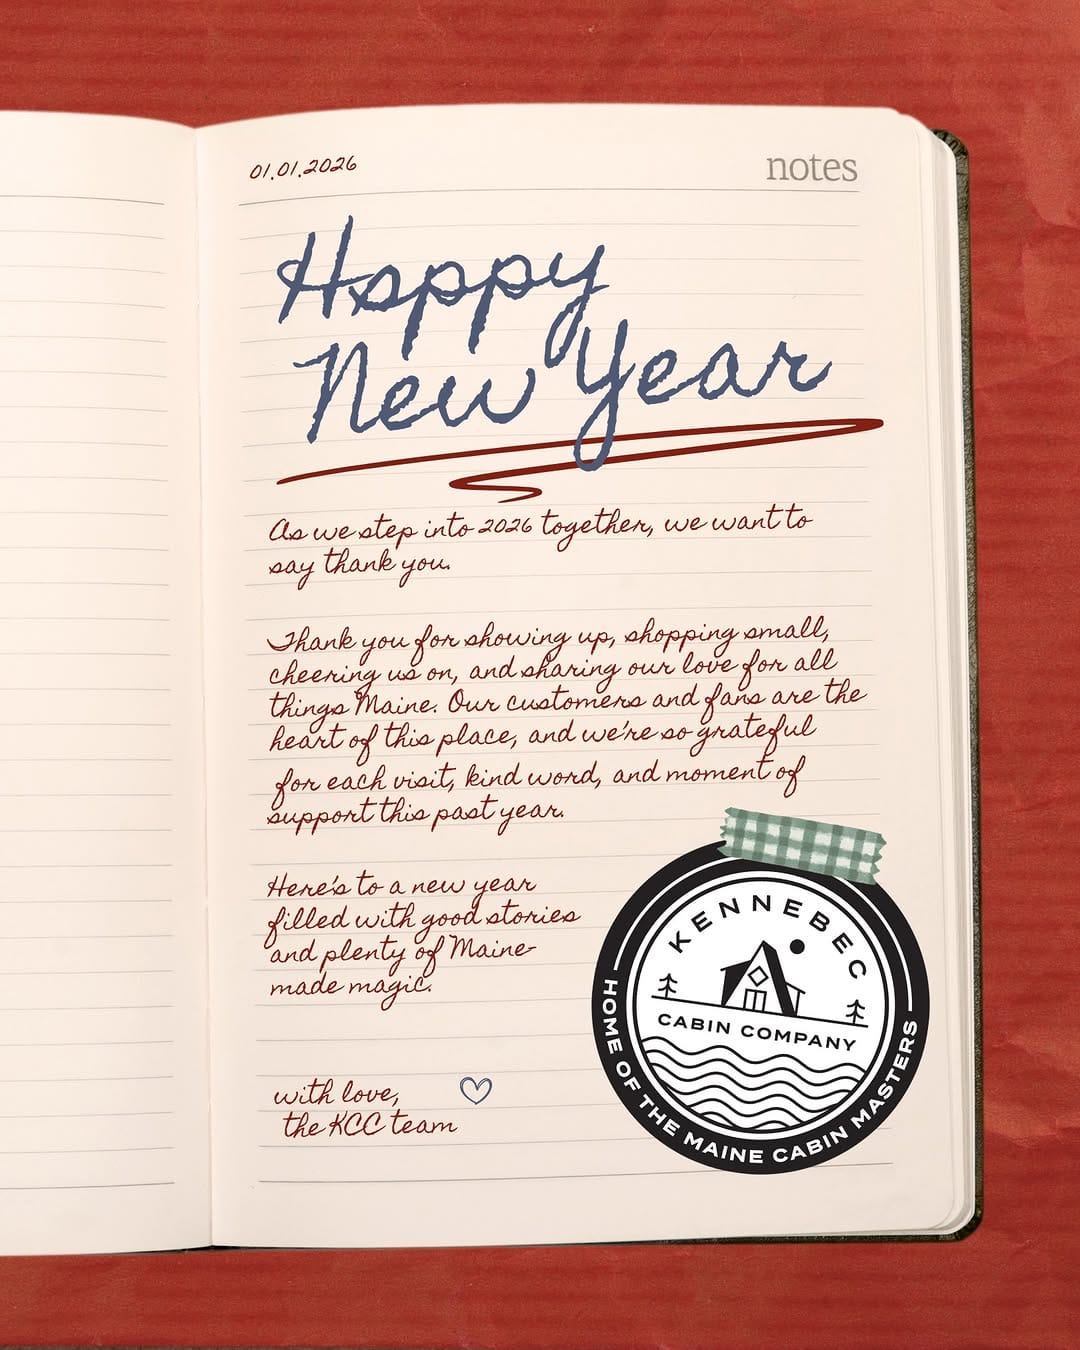 01.01.2026
notes
Happy
New Year
As we step into 2026 together, we want to
say thank you.
Thank you for showing up, shopping small,
cheering us on, and sharing our love for all
things Maine. Our customers and fans are the
heart of this place, and we're so grateful
for each visit, kind word, and moment of
support this past year.
Here's to a new year
filled with good stories
and plenty of Maine-
made magic.
with love,
the KCC team
KENNEBEC
CABIN COMPANY
HOME OF THE MAINE CABIN MASTERS